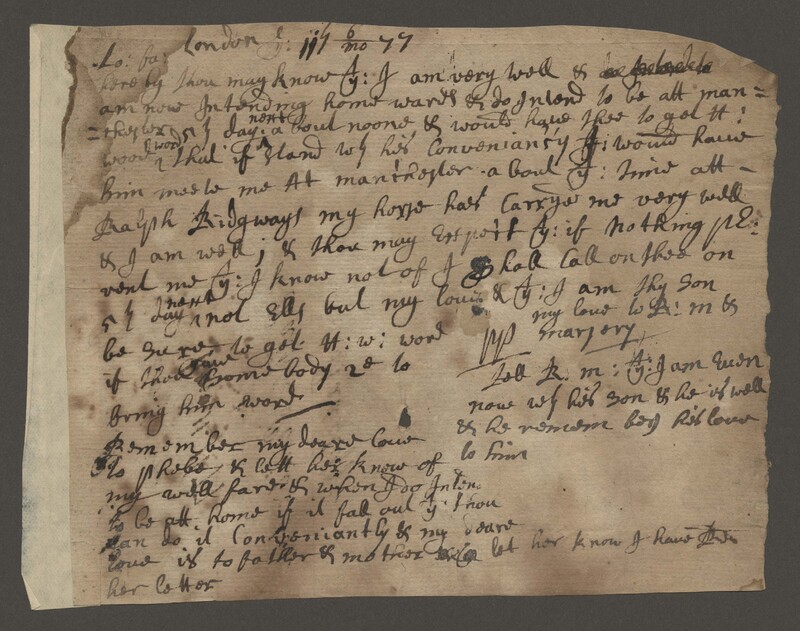 London yᵉ: 11ᵗʰ 6/mo 77
Lo: fa:
hereby thou may know yᵗ: I am very well &
am now Intending home wards & do Intend to be att man=
=chester 5ᵗʰ day next a bout noone & would have thee to get H:
wood word that if stand wᵗʰ his Conveniancy yᵗ: I would have
him meete me At manchester a bout yᵗ: time att
Ralph Ridgways my horse hath Carryed me very well
& I am well; & thou may Expect yᵗ: if nothing pre:
vent me yᵗ: I know not of I shall Call on thee on
5ᵗʰ day next not Elss but my love & yᵗ: I am thy son
be sure to get H: w: word
if thou have some body to
bring him word
Remember my deare love
to phebe & lett her know of
my well fare & when I do Inten
to be att home if it fall out yᵗ: thou
can do it Conveniantly & my deare
love is to father & mother let her know I have
her letter
my love to R: m &
margery
tell R. m: yᵗ: I am Even
now wᵗʰ his son & he is well
& he remembers his love
to him